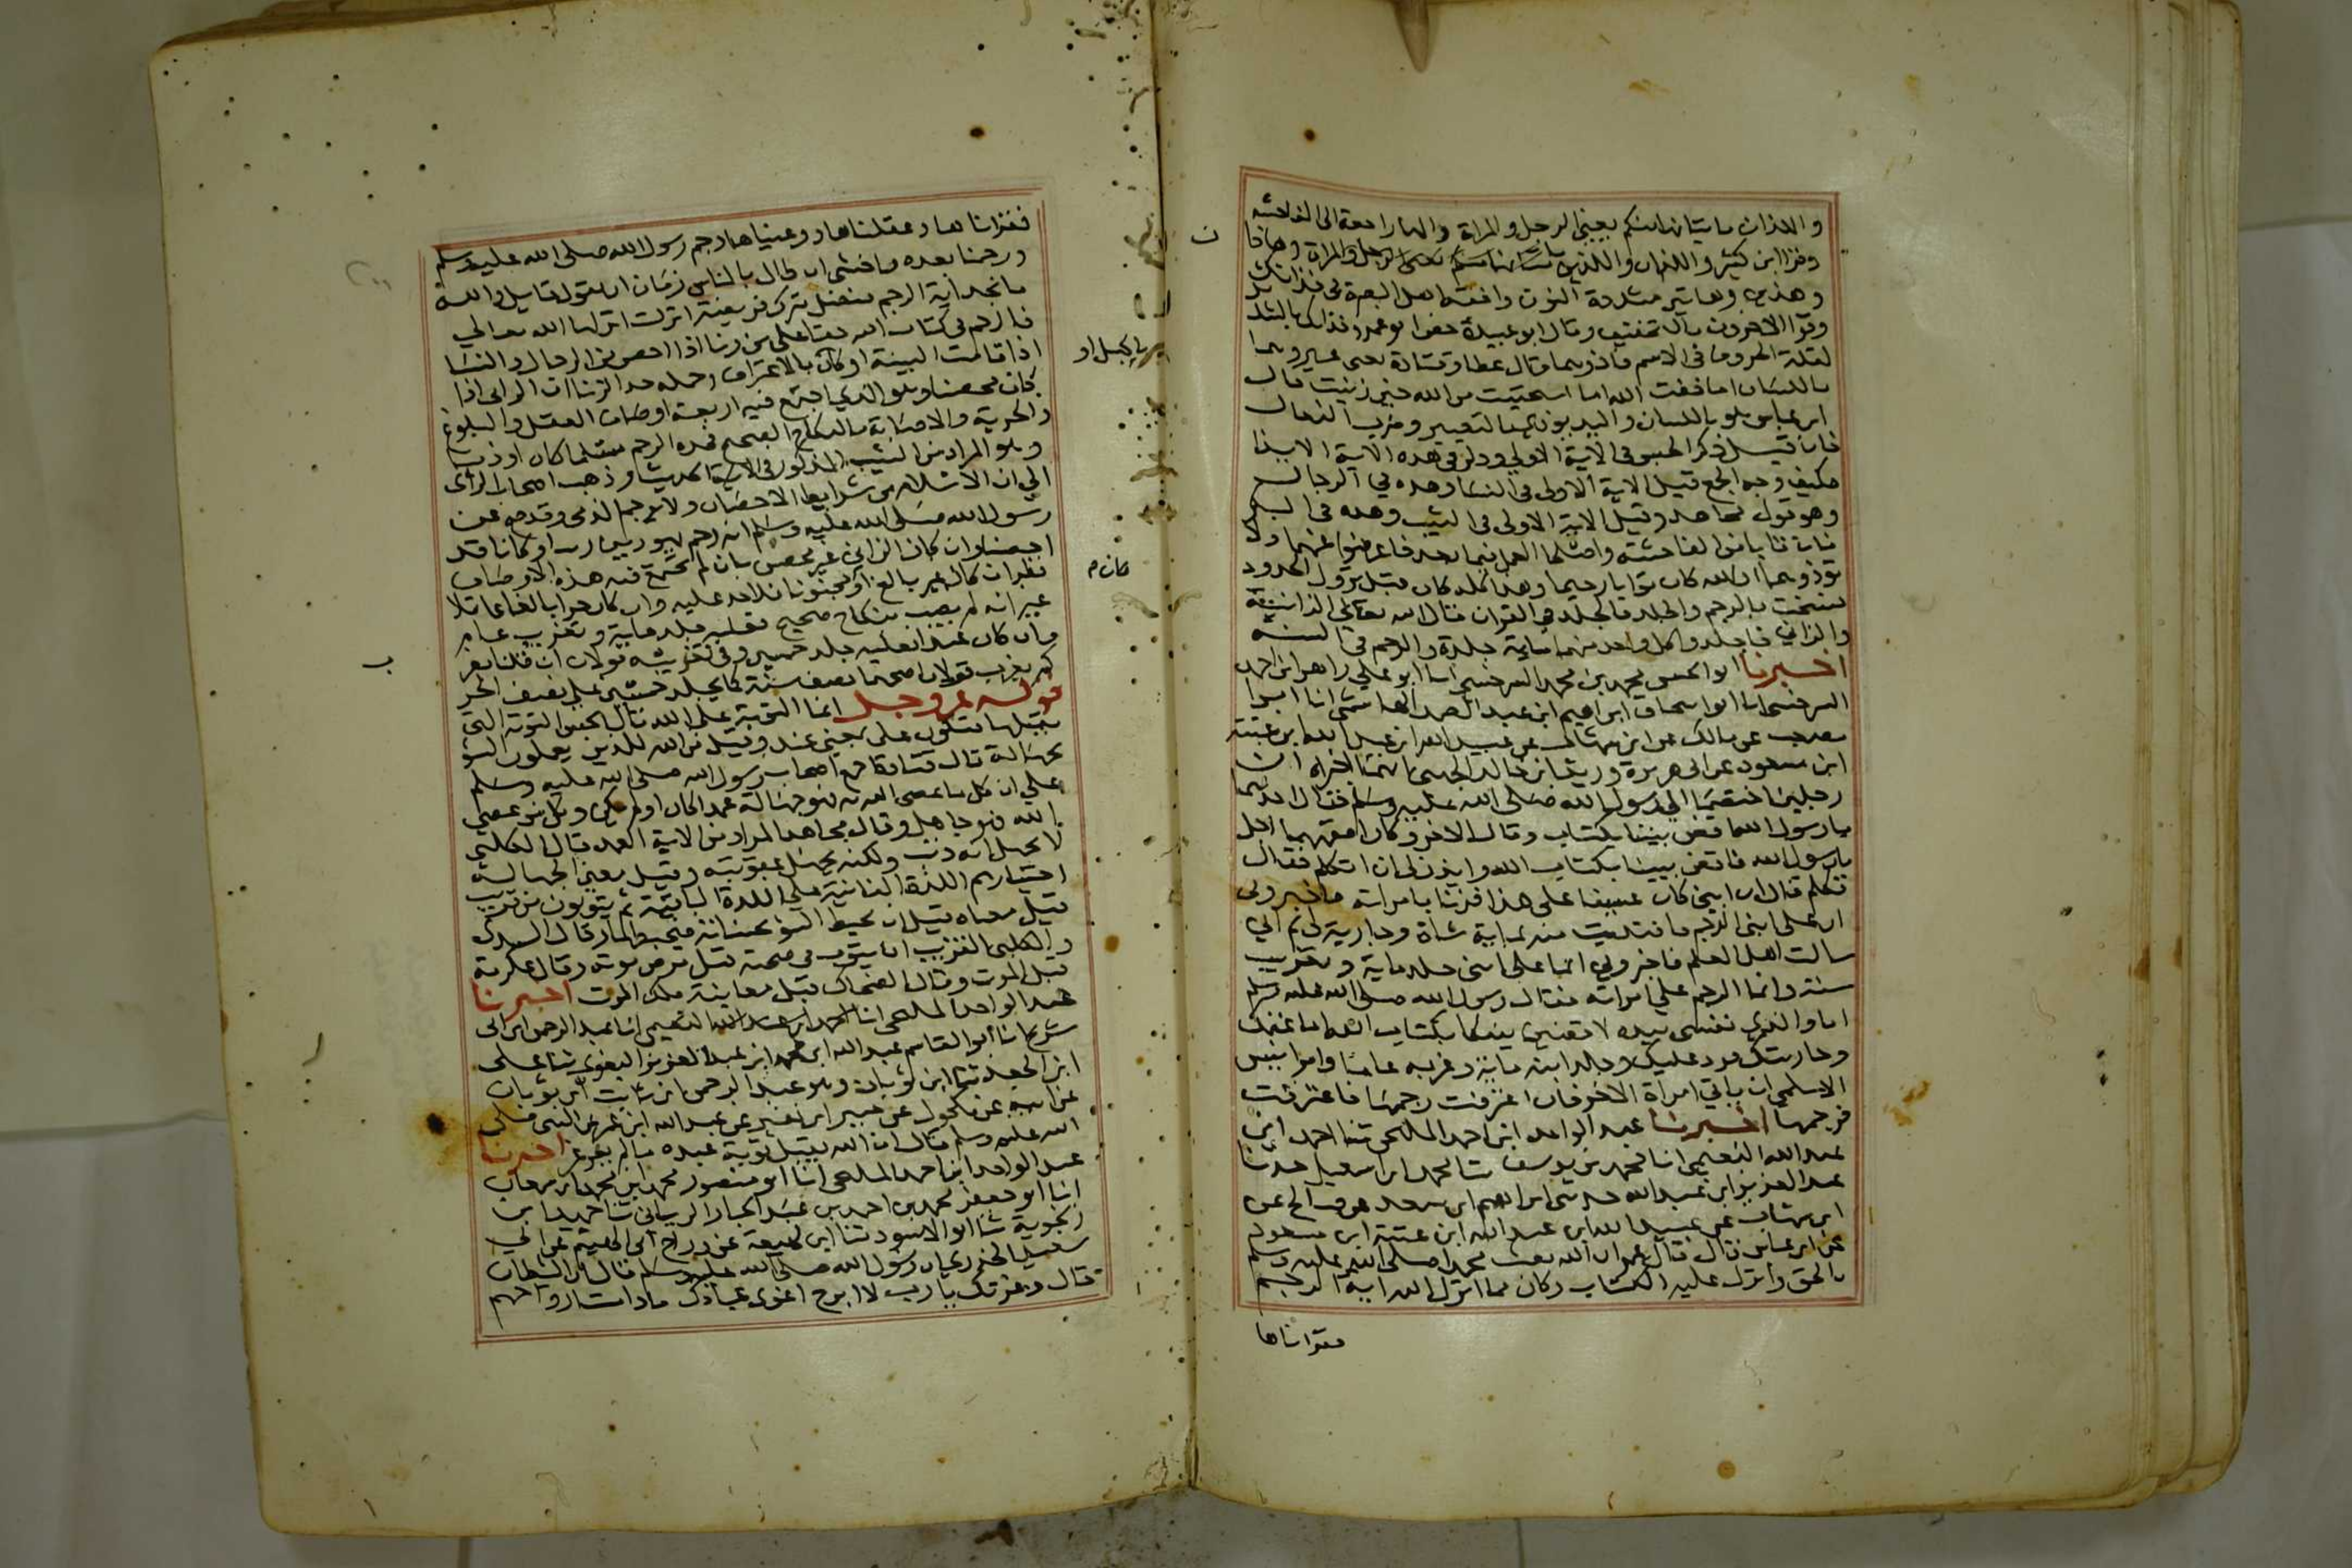 واللذان ياتيانها منكم يعني الرجل والمراة والهاء راجعة الى الفاحشه
وقرا ابن كثير واللذان واللذين ياتيانها منكم يعني الرجل والمراة وهاذان
وهذين وهاتين مشددة النون وافقه اهل البصرة في فذانك
وقرا الاخرون بالتخفيف وقال ابو عبيدة خص ابو عمرو فذانك بالتشديد
لقلة الحروف في الاسم فاذوهما قال عطا وقتادة يعني عيروهما
باللسان اما خفت الله اما استحييت من الله حين زنيت قال
ابن عباس هو باللسان واليد يوذى بالتعيير وضرب النعال
فان قيل ذكر الحبس في الاية الاولى وذكر في هذه الاية الايذا
فكيف وجه الجمع قيل الاية الاولى في النسا وهذه في الرجال
وهو قول مجاهد وقيل الاية الاولى في الثيب وهذه في البكر
فان تابا من الفاحشة واصلحا العمل فيما بعد فاعرضوا عنهما ولا
توذوهما ان الله كان توابا رحيما وهذا كله كان قبل نزول الحدود
فنسخت بالرجم والجلد فالجلد في القران قال الله تعالى الزانية
والزاني فاجلدوا كل واحد منهما ماية جلدة والرجم في السنة
اخبرنا ابو الحسن محمد بن محمد السرخسي انا ابو علي زاهر ابن احمد
السرخسي انا ابو اسحاق ابراهيم ابن عبد الصمد الهاشمي انا ابو
مصعب عن مالك عن ابن شهاب عن عبيد الله ابن عبد الله ابن عتبة
ابن مسعود عن ابى هريرة وزيد ابن خالد الجهني انهما اخبراه ان
رجلين اختصما الى رسول الله صلى الله عليه وسلم فقال احدهما
يا رسول الله اقض بيننا بكتاب وقال الاخر وكان افقههما اجل
يا رسول الله فاقض بيننا بكتاب الله وايذن لى ان اتكلم فقال
تكلم قال ان ابني كان عسيفا على هذا فزنا بامراته فاخبرونى
ان على ابنى الرجم فافتديت منه بماية شاة وجارية لى ثم اني
سالت اهل العلم فاخبروني انما على ابنى جلد ماية وتغريب
سنة وانما الرجم على امراته فقال رسول الله صلى الله عليه وسلم
اما والذي نفسي بيده لاقضين بينكما بكتاب الله اما غنمك
وجاريتك فرد عليك وجلد ابنه ماية وغربه عاما وامر انيس
الاسلمي ان ياتي امراة الاخر فان اعترفت رجمها فاعترفت
فرجمها اخبرنا عبد الواحد ابن احمد المليحي ثنا احمد ابن
عبد الله النعيمي انا محمد بن يوسف ثنا محمد ابن اسمعيل حدثنا
عبد العزيز ابن عبد الله حدثنى ابراهيم ابن سعد عن صالح عن
ابن شهاب عن عبيد الله ابن عبد الله ابن عتبة ابن مسعود
عن ابن عباس قال قال عمر ان الله بعث محمدا صلى الله عليه وسلم
بالحق وانزل عليه الكتاب وكان مما انزل الله اية الرجم
فقراناها
فقراناها وعقلناها ووعيناها رجم رسول الله صلى الله عليه وسلم
ورجمنا بعده فاخشى ان طال بالناس زمان ان يقول قايل والله
ما نجد اية الرجم فنضل بترك فريضة انزلت انزلها الله تعالى
فالرجم في كتاب الله حق على من زنا اذا احصن من الرجال والنسا
اذا قامت البينة او كان بالاعتراف وجمله حد الزنا ان الزانى اذا
كان محصنا وهو الذي اجتمع فيه اربعة اوصاف العقل والبلوغ
والحرية والاصابة بالنكاح الصحيح فحده الرجم مسلما كان او ذميا
وهو المراد من الثيب المذكور في الحديث وذهب اصحاب الراى
الى ان الاسلام من شرايط الاحصان ولا يرجم الذمى وقد صح عن
رسول الله صلى الله عليه وسلم انه رجم يهوديين وكانا قد
احصنا وان كان الزاني غير محصن بان لم تجتمع فيه هذه الاوصاف
نظر ان كان غير بالغ او مجنونا فلا حد عليه وان كان حرا بالغا عاقلا
غير انه لم يصب بنكاح صحيح فعليه جلد ماية وتغريب عام
وان كان عبدا فعليه جلد خمسين وفي تغريبه قولان ان قلنا يغر
كم يغرب قولان اصحهما نصف سنة كما يجلد خمسين على نصف الحر
قوله عز وجل انما التوبة على الله قال الحسن التوبة التى
يقبلها فتكون على بمعنى عند وقيل من الله للذين يعملون السو
بجهالة قال قتادة اجمع اصحاب رسول الله صلى الله عليه وسلم
على ان كل ما عصى الله به فهو جهالة عمدا كان او لم يكن وكل من عصى
الله فهو جاهل وقال مجاهد المراد من الاية العمد قال الكلبي
لا يجهل انه ذنب ولكنه يجهل عقوبته وقيل معنى الجهالة
اختيارهم اللذة الفانية على اللذة الباقية ثم يتوبون من قريب
قيل معناه قبل ان يحيط السؤ بحسناته فيحبطها وقال السدى
والكلبى القريب ان يتوب في صحته قبل مرض موته وقال عكرمة
قبل الموت وقال الضحاك قبل معاينة ملك الموت اخبرنا
عبد الواحد المليحى انا احمد ابن عبد الله النعيمى انا عبد الرحمن ابن ابى
شريح انا ابو القاسم عبد الله ابن محمد ابن عبد العزيز البغوى ثنا على
ابن الجعد ثنا ابن ثوبان وهو عبد الرحمن ابن ثابت ابن ثوبان
عن ابيه عن مكحول عن جبير ابن نفير عن عبد الله ابن عمر عن النبى صلى
الله عليه وسلم قال ان الله يقبل توبة عبده ما لم يغرغر اخبرنا
عبد الواحد ابن احمد المليحى انا ابو منصور محمد ابن محمد ابن سمعان
انا ابو جعفر محمد بن احمد بن عبد الجبار الريانى ثنا حميد ابن
زنجوية ثنا ابو الاسود ثنا ابن لهيعة عن دراج ابى الهيثم عن ابي
سعيد الخدرى ان رسول الله صلى الله عليه وسلم قال ان الشيطان
قال وعزتك يا رب لا ابرح اغوى عبادك ما دامت ارواحهم